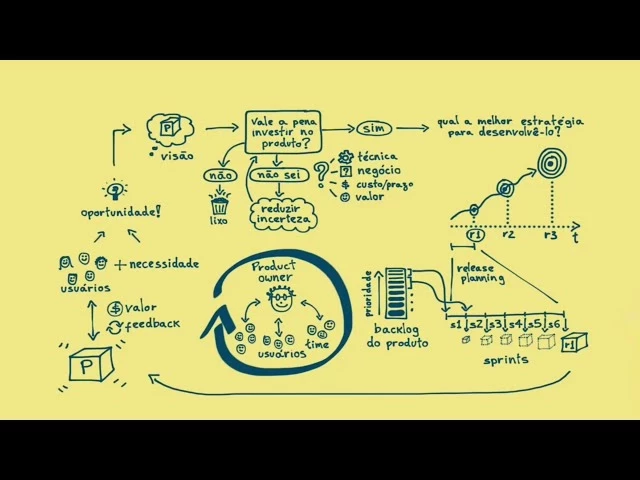 P
visão
Vale a pena
investir no
produto?
sim
qual a melhor estratégia
para desenvolvê-lo?
não
não sei
lixo
reduzir
incerteza
?
técnica
? negócio
$ custo/prazo
valor
oportunidade!
usuários
+ necessidade
$ valor
feedback
P
Product
owner
usuários
time
prioridade
backlog
do produto
r1
r2
r3
t
release
planning
s1
s2
s3
s4
s5
s6
r1
sprints